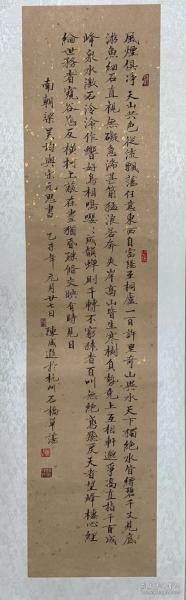 風煙俱淨天山共色從流飄蕩任意東西自富陽至桐廬一百許里奇山異水天下獨絕水皆縹碧千丈見底
游魚細石直視無礙急湍甚箭猛浪若奔夾岸高山皆生寒樹負勢競上互相軒邈爭高直指千百成
峰泉水激石泠泠作響好鳥相鳴嚶嚶成韻蟬則千轉不窮猿則百叫無絕鳶飛戾天者望峰息心經
綸世務者窺谷忘反橫柯上蔽在晝猶昏疎條交映有時見日
南朝梁吳均與宋元思書 乙未年元月廿七日陳進於杭州石橋